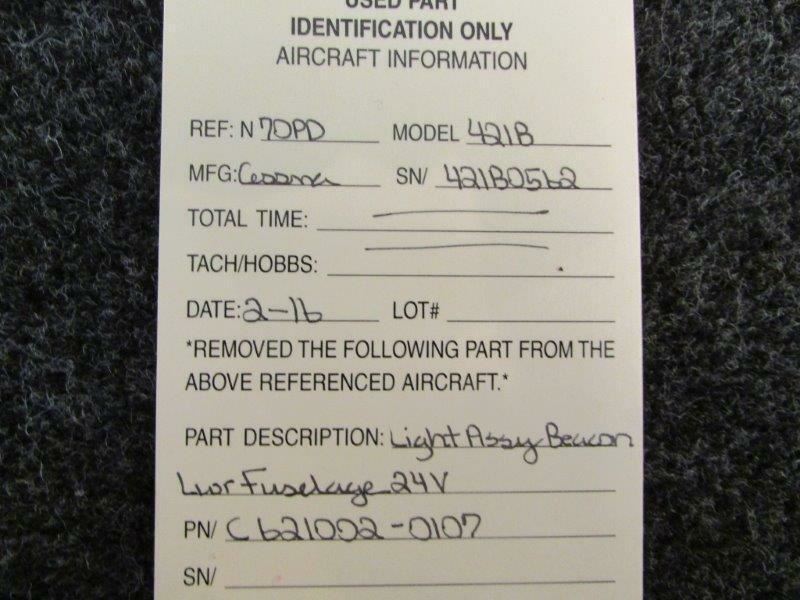 USED PART
IDENTIFICATION ONLY
AIRCRAFT INFORMATION
REF: N 70PD MODEL 421B
MFG: Cessna SN/ 421B0562
TOTAL TIME:
TACH/HOBBS:
DATE: 2-16 LOT#
*REMOVED THE FOLLOWING PART FROM THE
ABOVE REFERENCED AIRCRAFT.*
PART DESCRIPTION: Light Assy Beacon
Lwr Fuselage 24V
PN/ C621002-0107
SN/